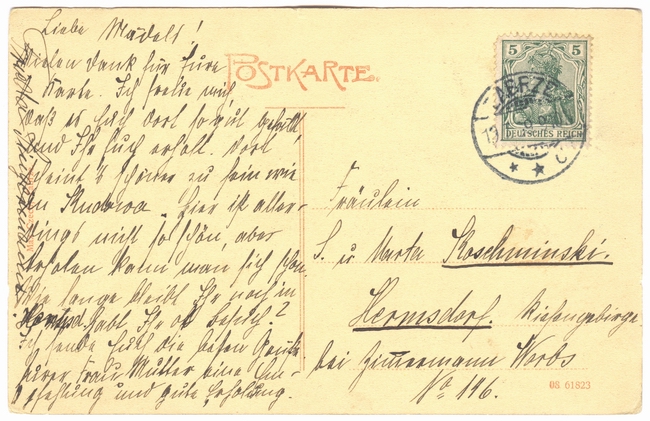 Liebe Mädels!
Vielen Dank für Eure
Karte. Ich freue mich,
daß es Euch dort so gut gefällt
und Ihr Euch erholt. Dort
scheint's schöner zu sein wie
in Kudowa. Hier ist aller-
dings nicht so schön, aber
erholen kann man sich schon.
Wie lange bleibt Ihr noch in
Habt Ihr oft Besuch?
Ich sende Euch die besten Grüße
Eurer Frau Mutter eine Em-
pfehlung und gute Erholung.
POSTKARTE.
5 5
DEUTSCHES REICH
Fräulein
S. u Marta Koschminski.
Hermsdorf. Riesengebirge
bei Zimmermann Worbs
No 146.
08 61823